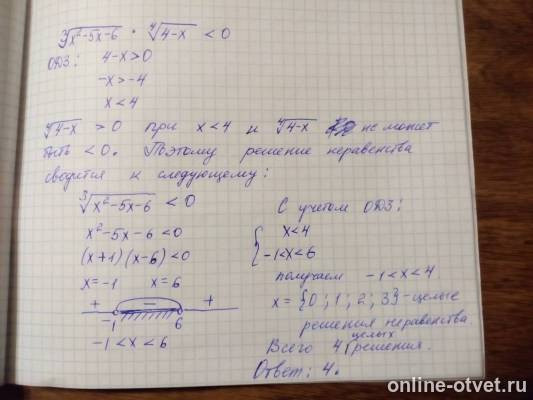 ∛x²-5x-6 · ∜4-x < 0
ОДЗ: 4-x>0
-x>-4
x<4
∜4-x > 0 при x<4 и ∜4-x не может
быть <0. Поэтому решение неравенства
сводится к следующему:
∛x²-5x-6 < 0
x²-5x-6<0
(x+1)(x-6)<0
x=-1 x=6
+ − +
-1 6
-1<x<6
С учетом ОДЗ:
{ x<4
-1<x<6
получаем -1<x<4
x={0; 1; 2; 3} - целые
решения неравенства.
Всего 4 целых решения.
Ответ: 4.
online-otvet.ru